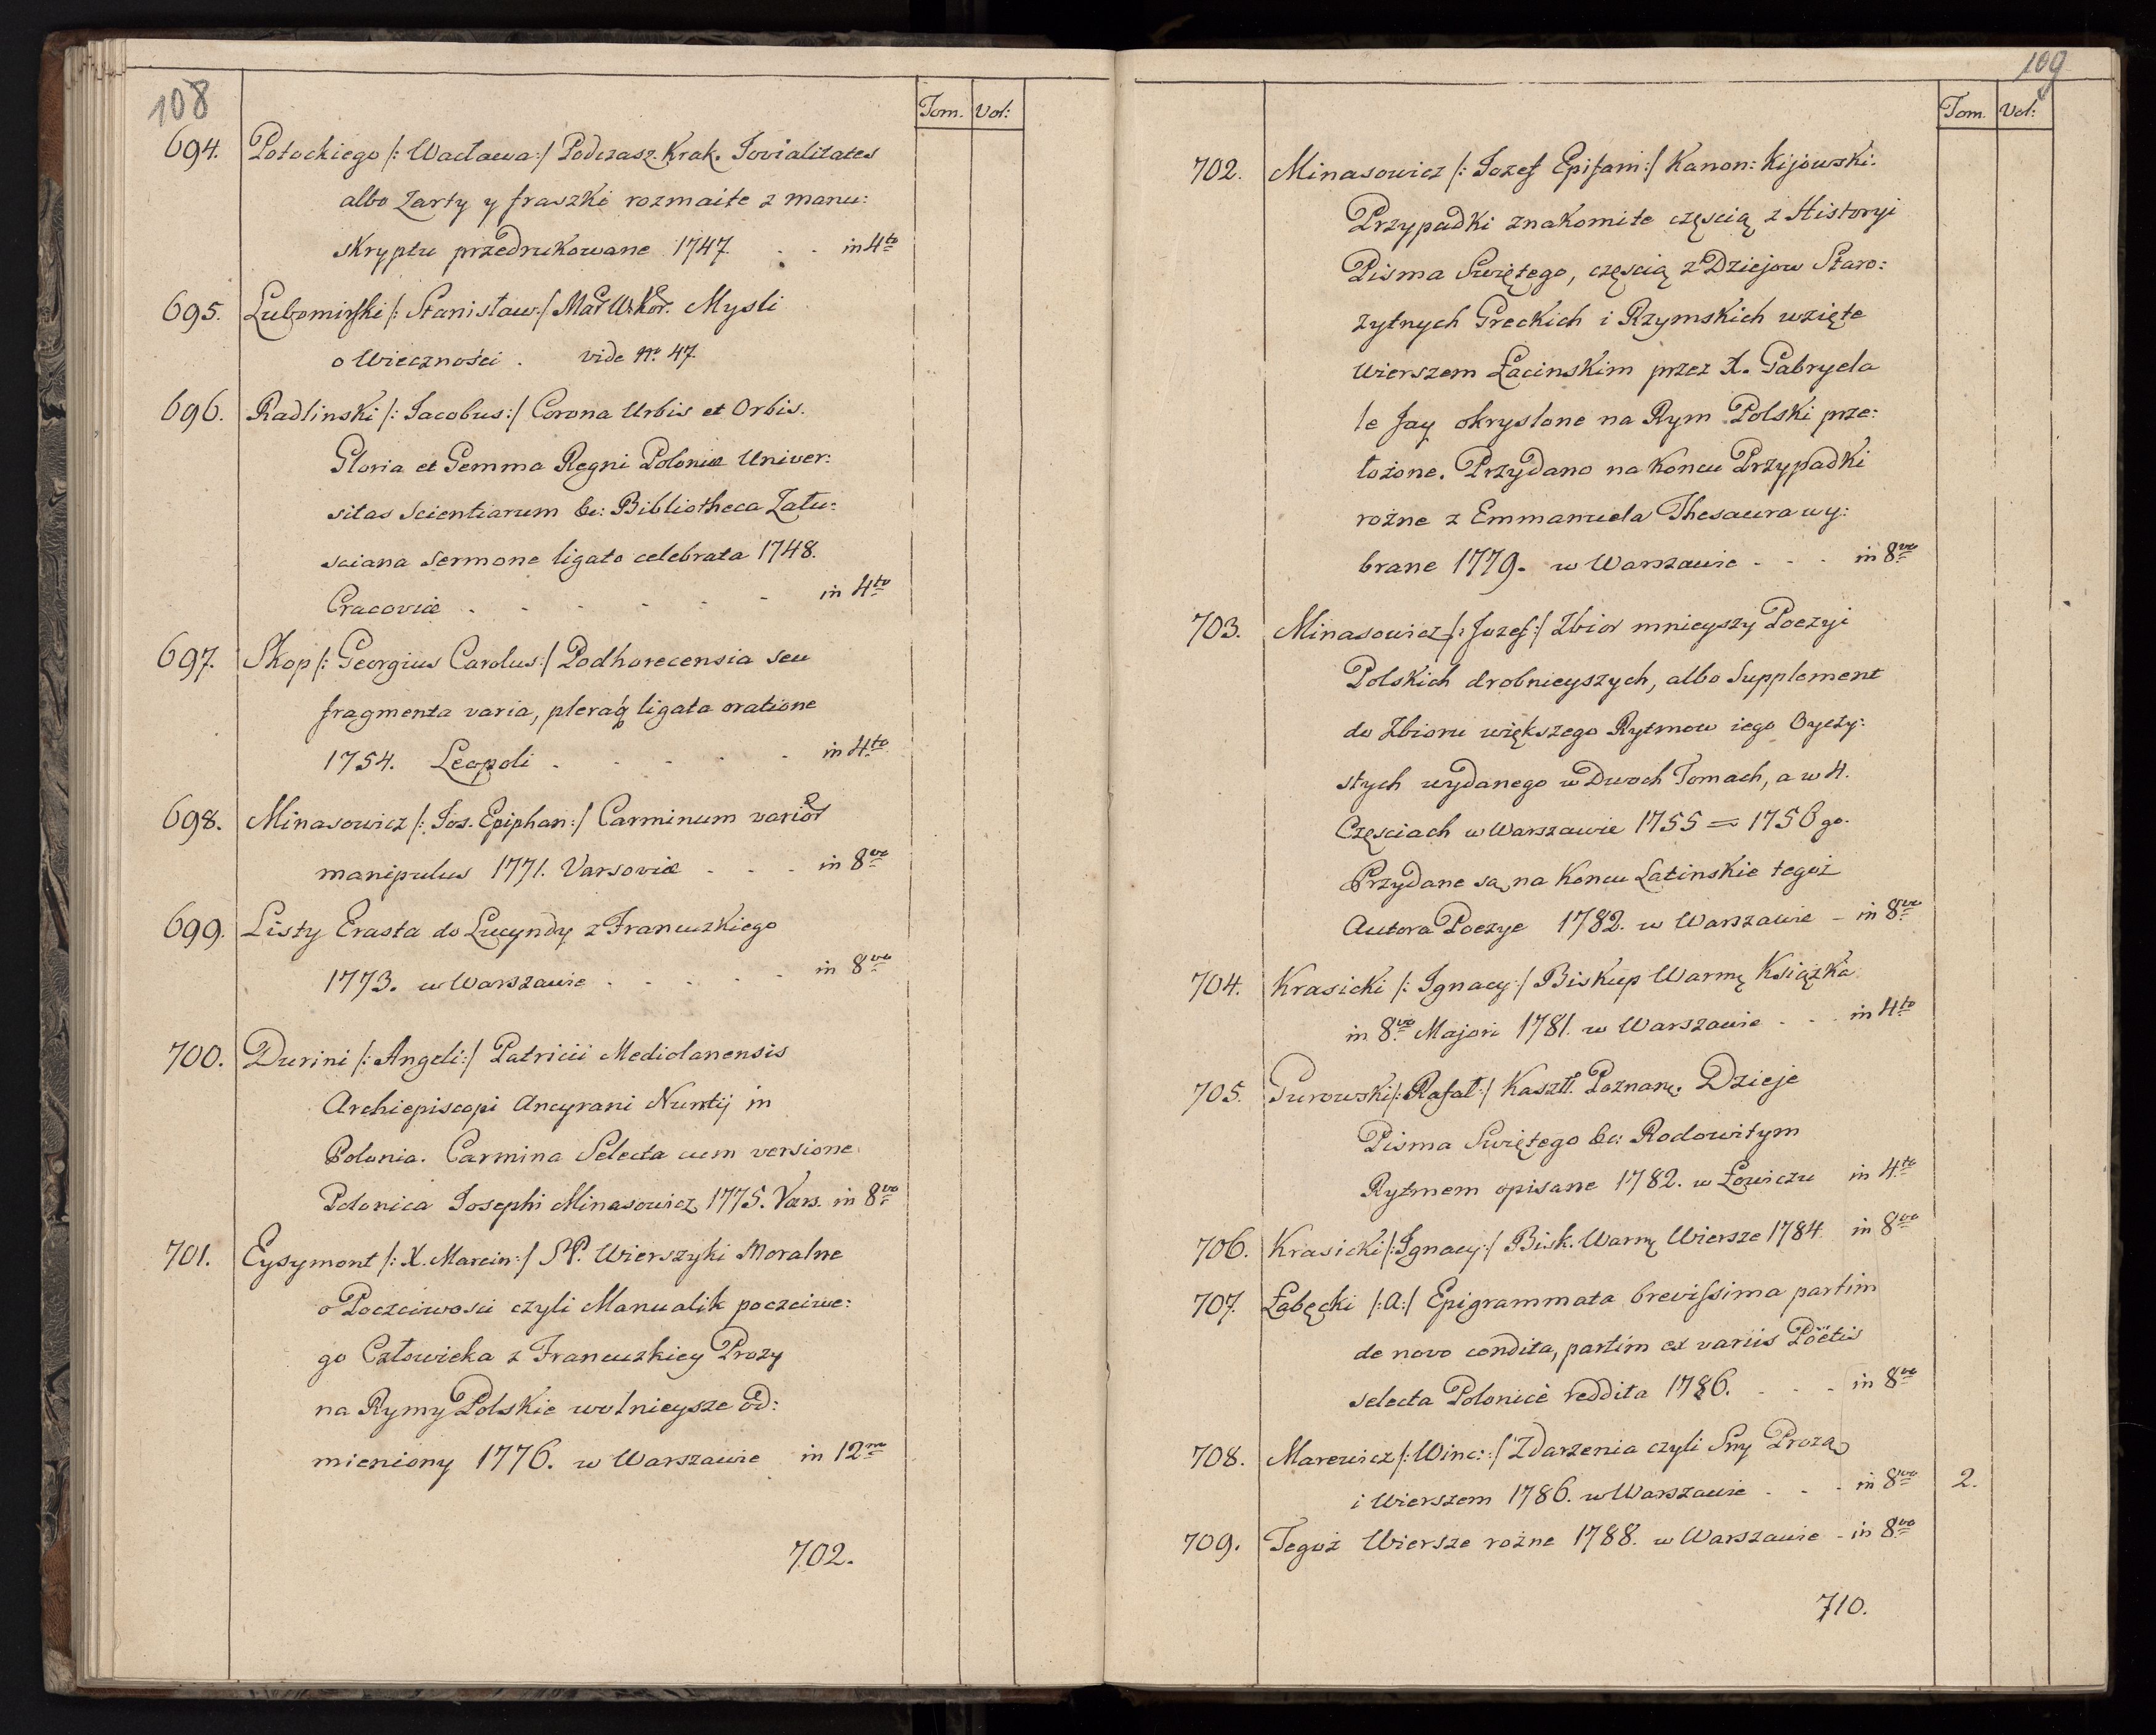 108
Tom. Vol:
694. Potockiego /: Wacława:/ Podczasz. Krak. Iovialitates
albo Zarty y fraszki rozmaite z manu:
skryptu przedrukowane 1747. . . in 4to
695. Lubomirski /: Stanisław:/ Mar W. Kor. Mysli
o Wieczności . vide No 47.
696. Radlinski /: Iacobus:/ Corona Urbis et Orbis.
Gloria et Gemma Regni Poloniæ Univer:
sitas Scientiarum &c: Bibliotheca Zalu:
sciana Sermone ligato celebrata 1748.
Cracoviæ . . . . . . in 4to
697. Skop /: Georgius Carolus:/ Podhorecensia seu
fragmenta varia, pleraq ligata oratione
1754. Leopoli . . . . . in 4to
698. Minasowicz /: Ios. Epiphan:/ Carminum varior
manipulus 1771. Varsoviæ . . . in 8vo
699. Listy Erasta do Lucyndy z Francuzkiego
1773. w Warszawie . . . . . in 8vo
700. Durini /: Angeli:/ Patricii Mediolanensis
Archiepiscopi Ancyrani Nuntij in
Polonia. Carmina Selecta cum versione
Polonica Iosephi Minasowicz 1775. Vars. in 8vo
701. Eysymont /: X. Marcin:/ S.P. Wierszyki Moralne
o Poczciwosci czyli Manualik poczciwe:
go Człowieka z Francuzkiey Prozy
na Rymy Polskie wolnieysze od:
mieniony 1776. w Warszawie in 12mo
702.
109
Tom. Vol:
702. Minasowicz /: Iozef Epifani:/ Kanon: Kijowski.
Przypadki znakomite częscią z Historyi
Pisma Swiętego, częscią z Dziejow Staro:
zytnych Greckich i Rzymskich wzięte
Wierszem Łacinskim przez X. Gabryela
le Jay okryslone na Rym Polski prze:
łożone. Przydano na koncu Przypadki
rożne z Emmanuela Thesaura wy:
brane 1779. w Warszawie . . . in 8vo
703. Minasowicz /: Jozef:/ Zbior mnieyszy Poezyi
Polskich drobnieyszych, albo Supplement
do Zbioru większego Rytmow iego Oyczy:
stych wydanego w Dwoch Tomach, a w 4.
Częsciach w Warszawie 1755 = 1756 go.
Przydane są na koncu Latinskie tegoż
Autora Poezye 1782. w Warszawie - in 8vo
704. Krasicki /: Ignacy:/ Biskup Warmę Książka
in 8vo Majori 1781. w Warszawie . . . in 4to
705. Gurowski /: Rafał:/ Kasztl. Poznanę. Dzieje
Pisma Swiętego &c: Rodowitym
Rytmem opisane 1782. w Łowiczu in 4to
706. Krasicki /: Ignacy:/ Bisk. Warmę Wiersze 1784. in 8vo
707. Łabęcki /: A:/ Epigrammata brevissima partim
de novo condita, partim ex variis Poëtis
selecta Polonicè reddita 1786. . . . in 8vo
708. Marewicz /: Winc:/ Zdarzenia czyli Sny Prozą
i Wierszem 1786. w Warszawie . . . in 8vo 2.
709. Tegoż Wiersze rożne 1788. w Warszawie - in 8vo
710.